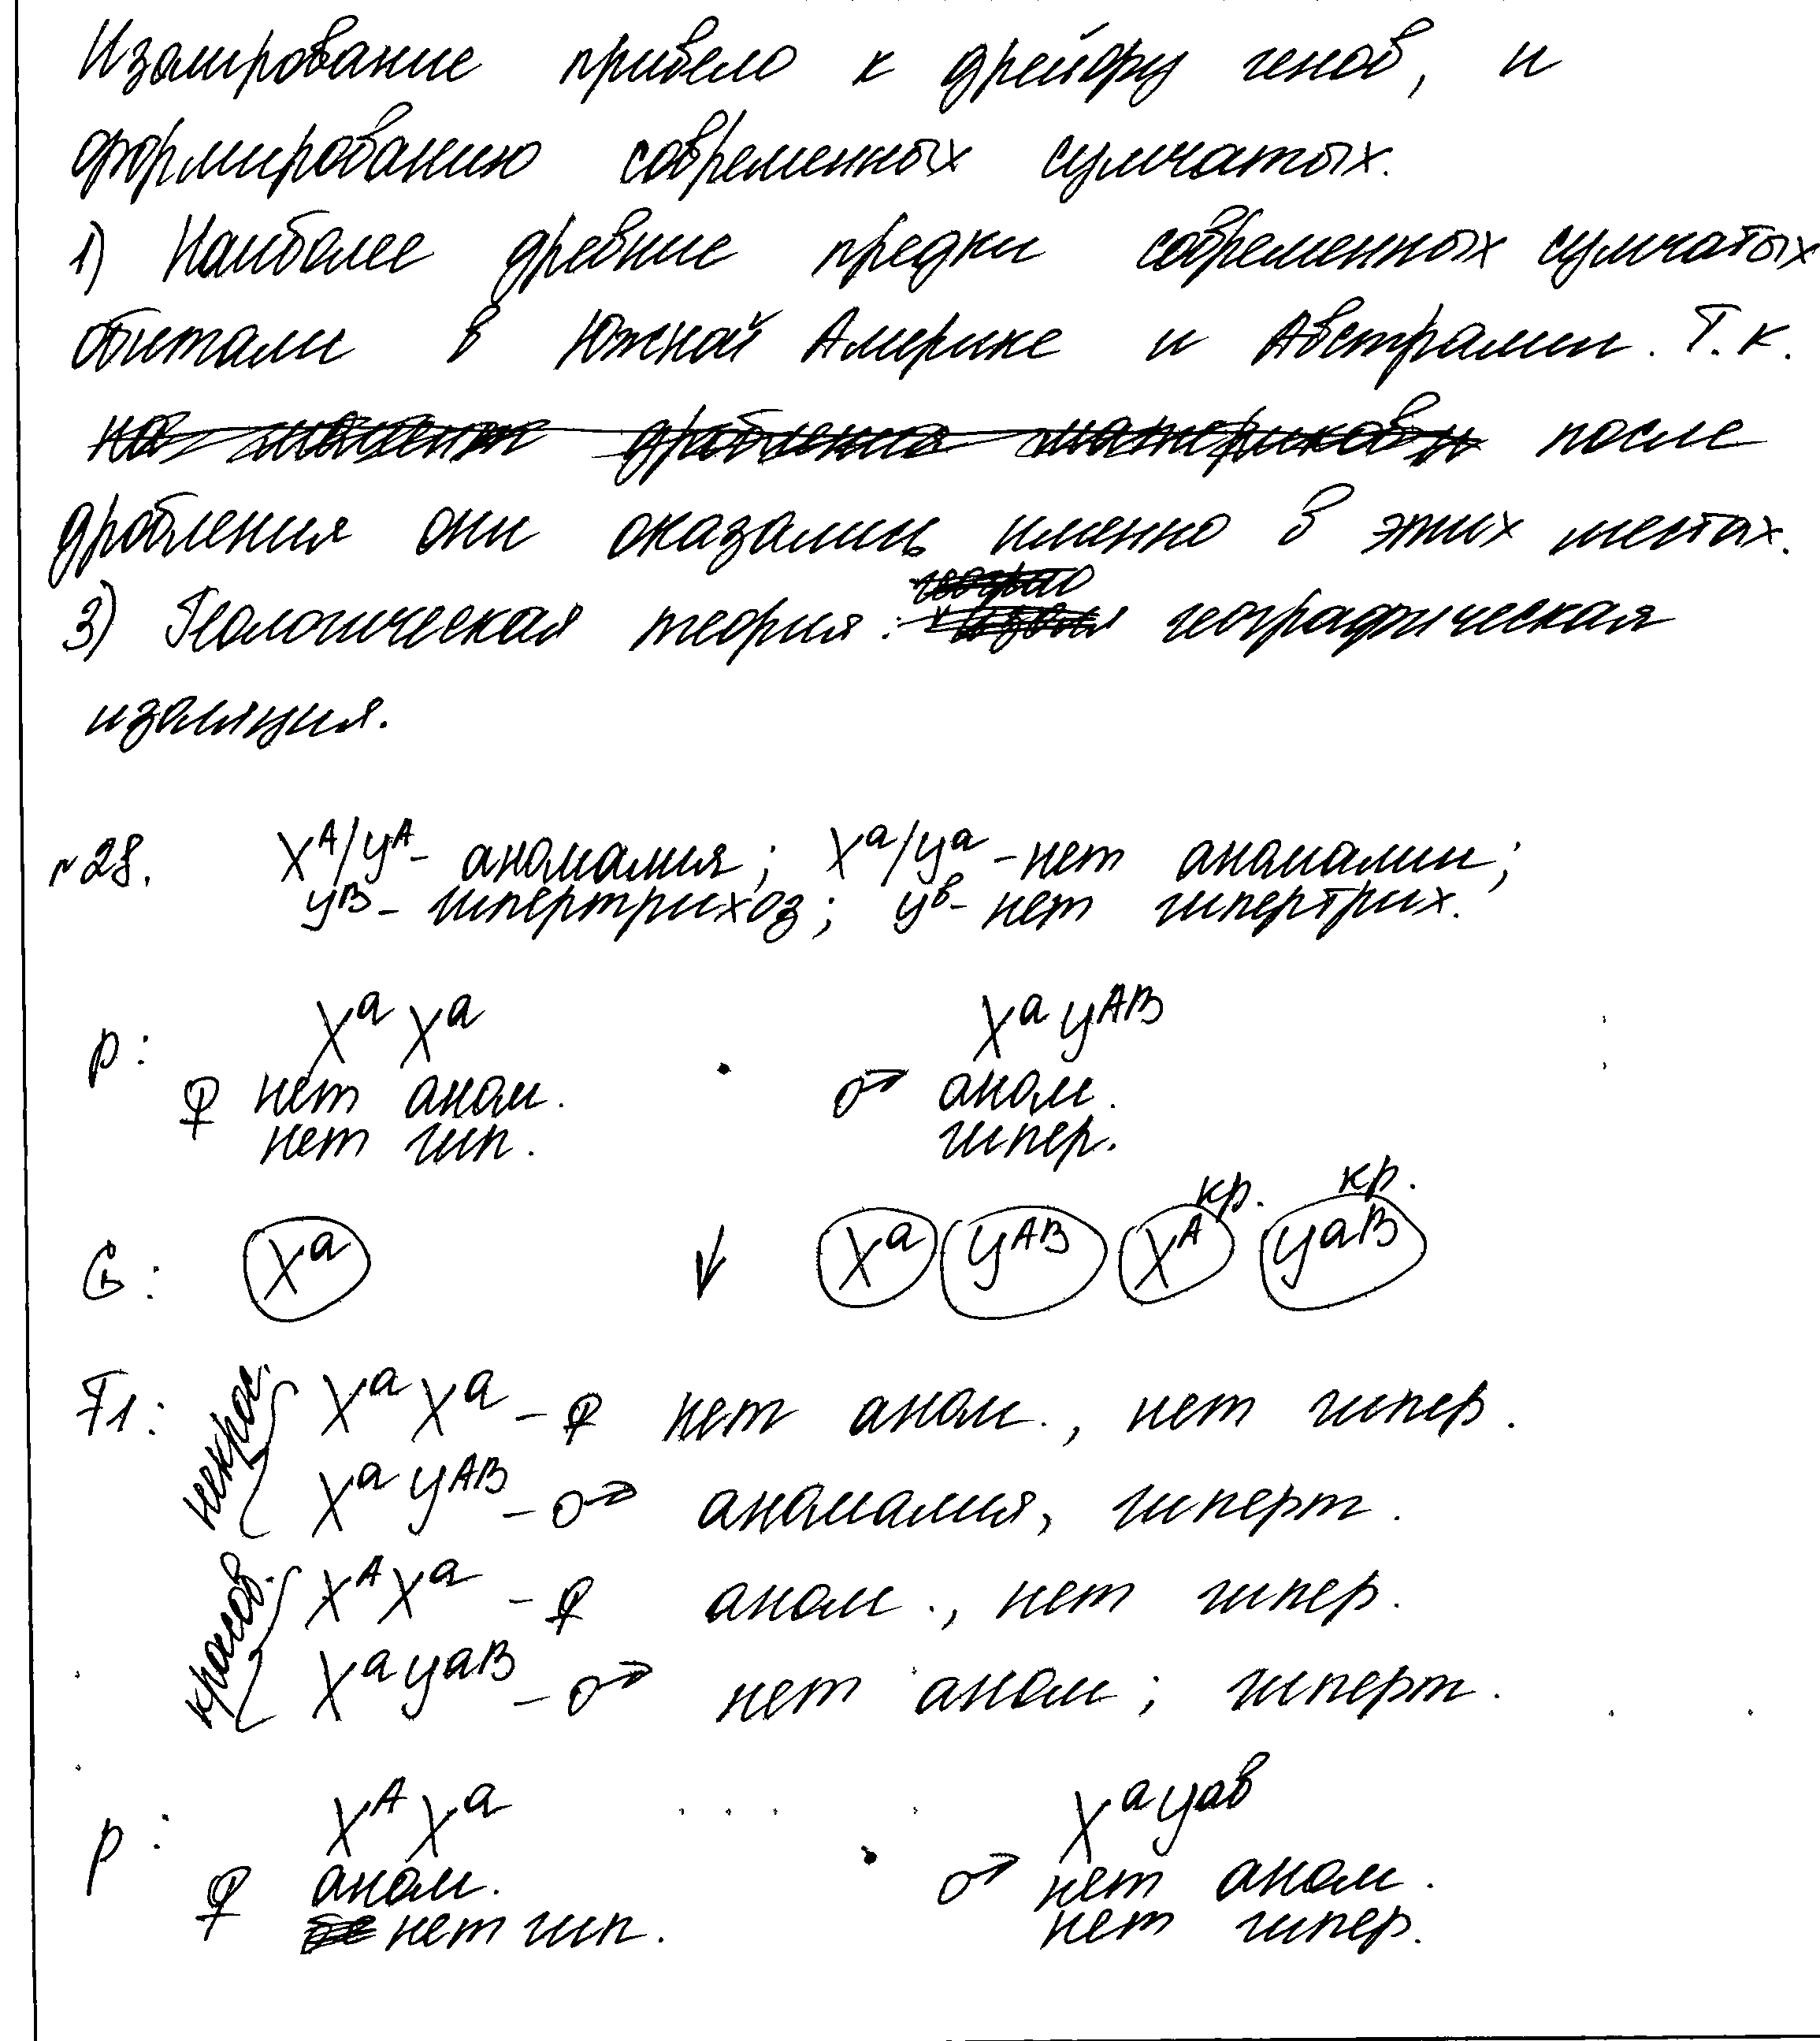 Изолирование привело к дрейфу генов, и
формированию современных сумчатых.
1) Наиболее древние предки современных сумчатых
обитали в Южной Америке и Австралии. Т.к.
на момент дробления материков и после
дробления они оказались именно в этих местах.
3) Геологическая теория: географическая
изоляция.
№28. Xᴬ/Yᴬ- аномалия; Xᵃ/Yᵃ -нет аномалии;
Yᴮ- гипертрихоз; Yᵇ- нет гипертрих.
P: XᵃXᵃ · XᵃYᴬᴮ
♀ нет аном. ♂ аном.
нет гип. гипер.
кр. кр.
G: Xᵃ ↓ Xᵃ Yᴬᴮ Xᴬ Yᵃᴮ
F1: некрос. XᵃXᵃ - ♀ нет аном., нет гипер.
XᵃYᴬᴮ - ♂ аномалия, гиперт.
кросов. XᴬXᵃ - ♀ аном., нет гипер.
XᵃYᵃᴮ - ♂ нет аном; гиперт.
P: XᴬXᵃ · XᵃYᵃᵇ
♀ аном. ♂ нет аном.
нет гип. нет гипер.